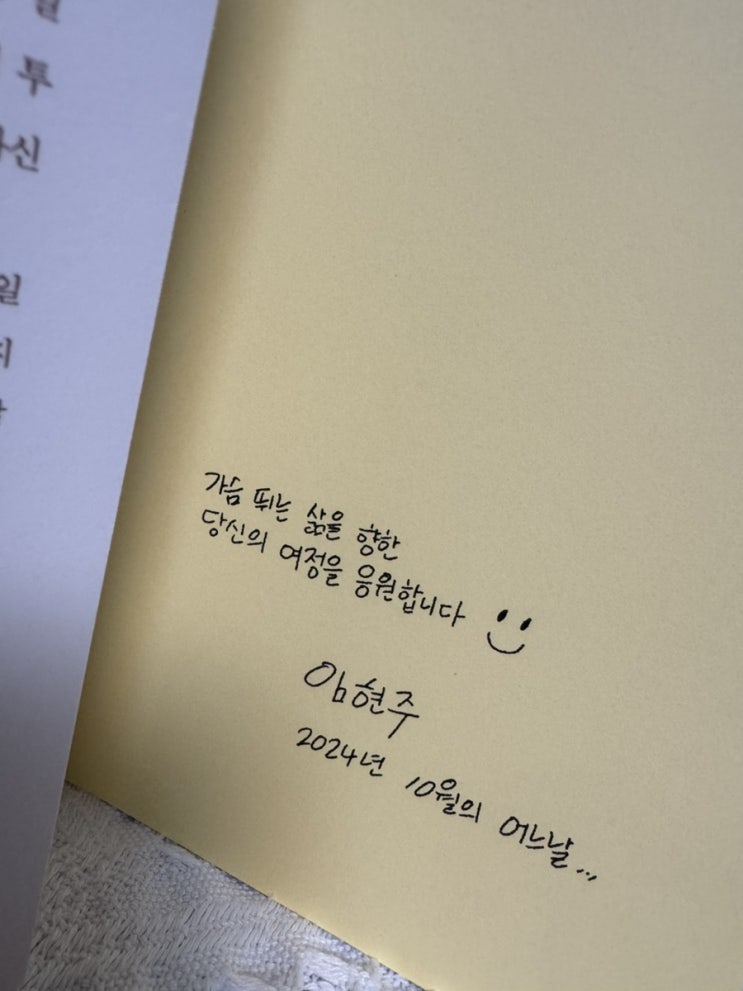 투
신
일
가슴 뛰는 삶을 향한
당신의 여정을 응원합니다
임현주
2024년 10월의 어느날...